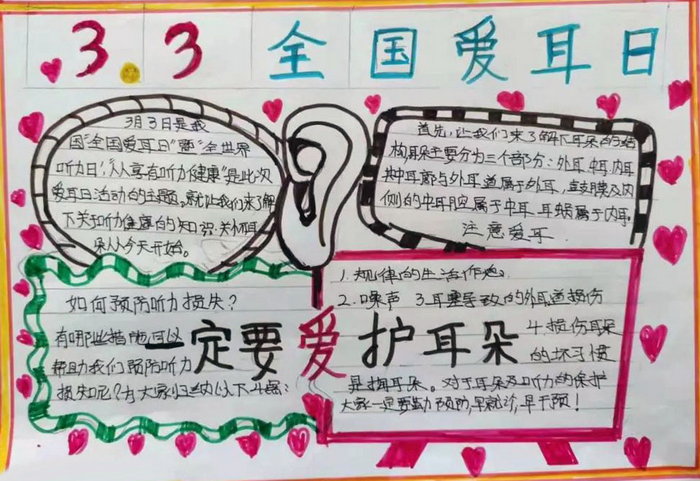 3.3 全国爱耳日
3月3日是我
国"全国爱耳日"暨"全世界
听力日","人人享有听力健康"是此次
爱耳日活动的主题,就让我们来了解
下关于听力健康的知识,关爱耳
朵从今天开始。
首先,让我们来了解下耳朵的结
构耳朵主要分为三个部分:外耳,中耳,内耳
其中耳廓与外耳道属于外耳,鼓膜及内
侧的中耳腔属于中耳,耳蜗属于内耳
注意爱耳.
如何预防听力损失?
有哪些措施可以
帮助我们预防听力
损知呢?为大家归纳以下4点:
一定要爱护耳朵
1.规律的生活作息。
2.噪声 3.耳塞导致的外耳道损伤
4.损伤耳朵
的坏习惯
是掏耳朵。对于耳朵及听力的保护
大家一定要勤预助,早就诊,早干预!